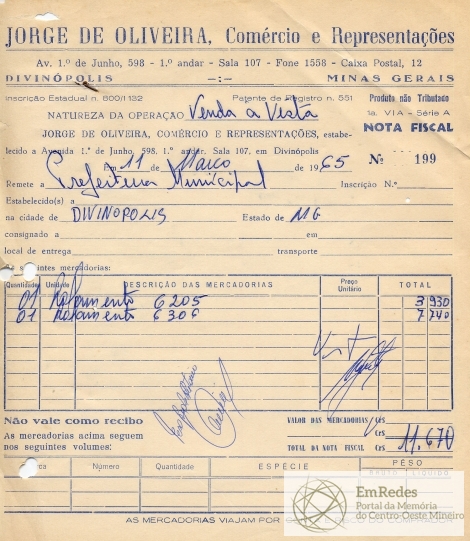 JORGE DE OLIVEIRA, Comércio e Representações
Av. 1.º de Junho, 598 - 1.º andar - Sala 107 - Fone 1558 - Caixa Postal, 12
DIVINÓPOLIS —:— MINAS GERAIS
Inscrição Estadual n. 800/1132 Patente de Registro n. 551 Produto não Tributado
NATUREZA DA OPERAÇÃO Venda a Vista 1a. VIA - Série A
JORGE DE OLIVEIRA, COMÉRCIO E REPRESENTAÇÕES, estabe- NOTA FISCAL
lecido a Avenida 1.º de Junho, 598. 1.º andar. Sala 107, em Divinópolis
Em 11 de Março de 1965 Nº 199
Remete a Prefeitura Municipal Inscrição N.º
Estabelecido(s) a
na cidade de DIVINOPOLIS Estado de MG
consignado a em
local de entrega transporte
As seguintes mercadorias:
Quantidades Unidade DESCRIÇÃO DAS MERCADORIAS Preço Unitário TOTAL
01 Rolamento 6205 3 930
01 Rolamento 6306 7 740
Não vale como recibo VALOR DAS MERCADORIAS Cr$
As mercadorias acima seguem Cr$
nos seguintes volumes: TOTAL DA NOTA FISCAL Cr$ 11.670
Marca Número Quantidade ESPÉCIE PÊSO
BRUTO LÍQUIDO
EmRedes
Portal da Memória
do Centro-Oeste Mineiro
AS MERCADORIAS VIAJAM POR CONTA E RISCO DO COMPRADOR